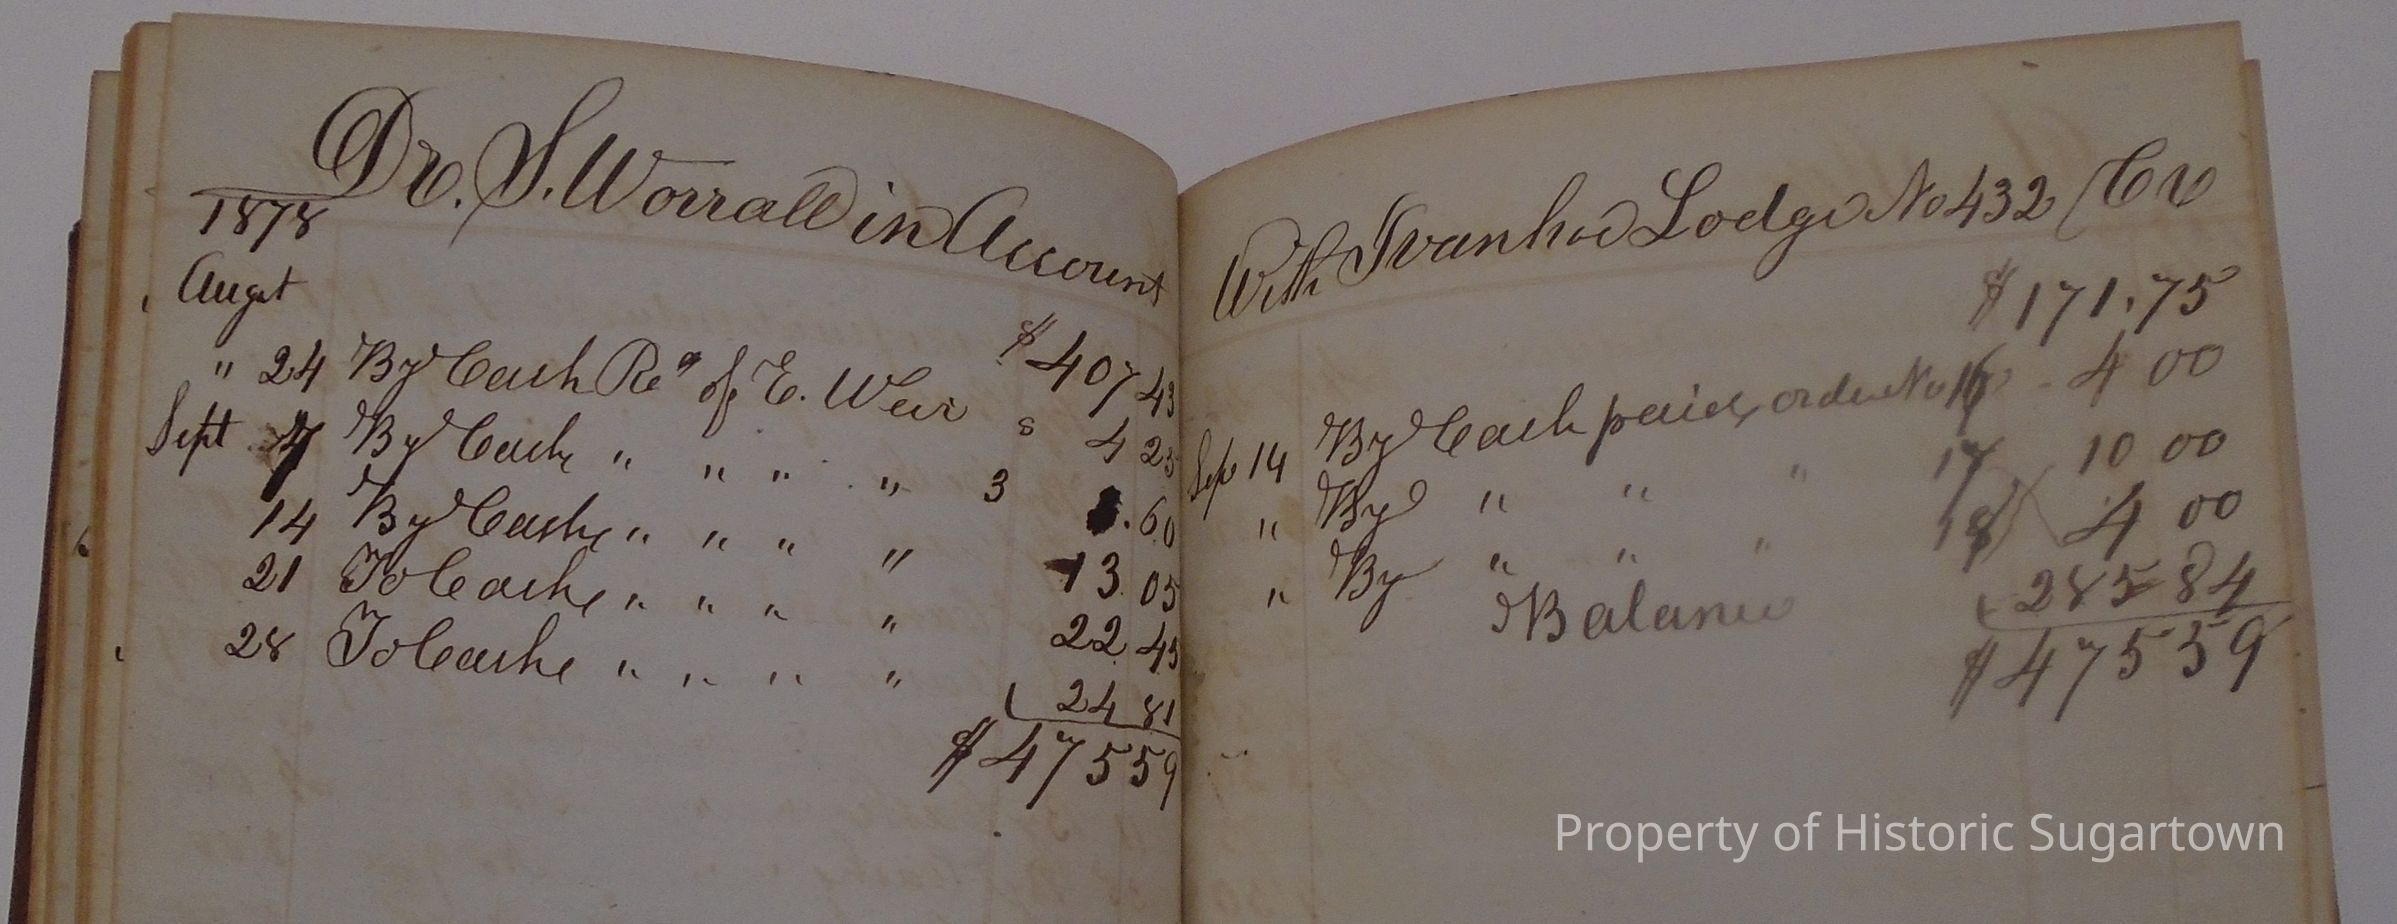 Dr. S. Worrall in Account
1878
Augst
$407 43
" 24 By Cash Recd of E. Weir 8 4 25
Sept 7 By Cash " " " " 3 .60
14 By Cash " " " " 13 05
21 To Cash " " " " 22 45
28 To Cash " " " " 24 81
$475 59
With Ivanhoe Lodge No 432 Cr
$171.75
Sep 14 By Cash paid order No 16 4 00
" By " " " 17 10 00
" By " " " 18 4 00
Balance 285 84
$475 59
Property of Historic Sugartown